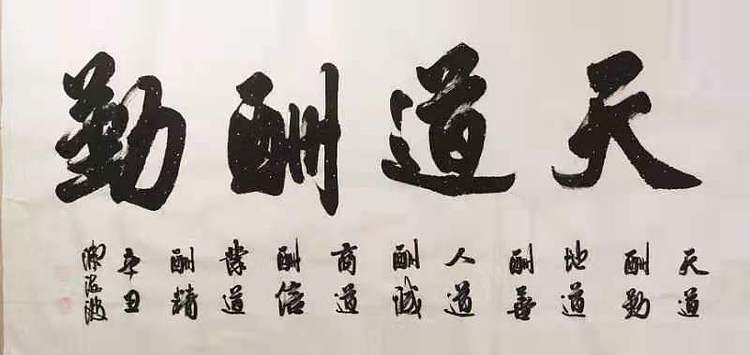 天道酬勤
天道
酬勤
地道
酬善
人道
酬诚
商道
酬信
业道
酬精
辛丑